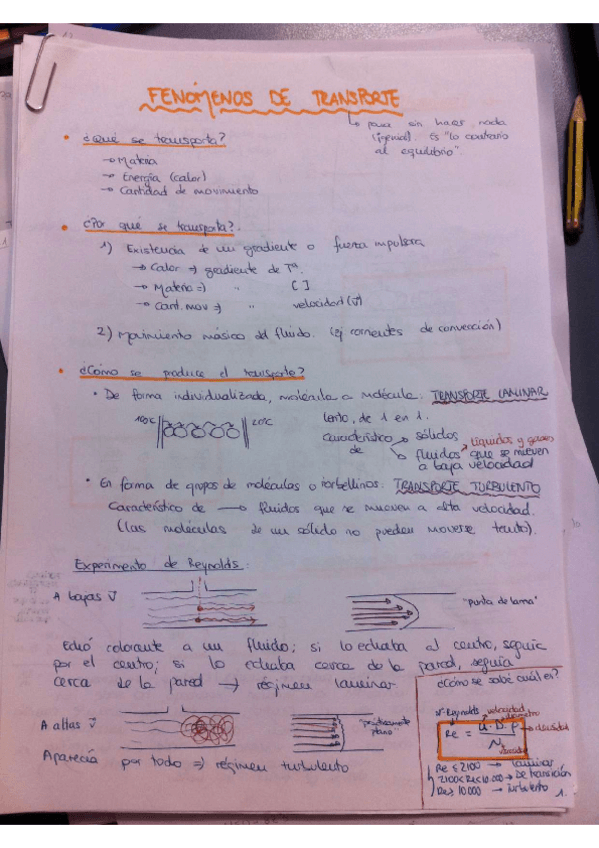 FENÓMENOS DE TRANSPORTE
pasa sin hacer nada
(genial). Es "lo contrario
al equilibrio".
• ¿Qué se transporta?
→ Materia
→ Energía (calor)
→ Cantidad de movimiento
• ¿Por qué se transporta?
1) Existencia de un gradiente o fuerza impulsora
→ Calor ⇒ gradiente de Tª.
→ Materia ⇒ " [ ]
→ Cant. mov ⇒ " velocidad (v)
2) Movimiento másico del fluido. (ej corrientes de convección)
• ¿Cómo se produce el transporte?
• De forma individualizada, molécula a molécula. TRANSPORTE LAMINAR
100ºC 20ºC
lento, de 1 en 1.
característico de → sólidos
→ fluidos que se mueven a baja velocidad
líquidos y gases
• En forma de grupos de moléculas o torbellinos: TRANSPORTE TURBULENTO
Característico de → fluidos que se mueven a alta velocidad.
(las moléculas de un sólido no pueden moverse tanto).
Experimento de Reynolds:
A bajas v
"punta de lama"
Echó colorante a un fluido; si lo echaba al centro, seguía
por el centro; si lo echaba cerca de la pared, seguía
cerca de la pared → régimen laminar.
A altas v
"prácticamente plano"
Aparecía por todo ⇒ régimen turbulento
¿Cómo se sabe cuál es?
Nº Reynolds velocidad diámetro
Re = u · D · ρ → densidad
μ viscosidad
Re ≤ 2100 → laminar
2100 < Re < 10.000 → De transición
Re ≥ 10000 → Turbulento
1.